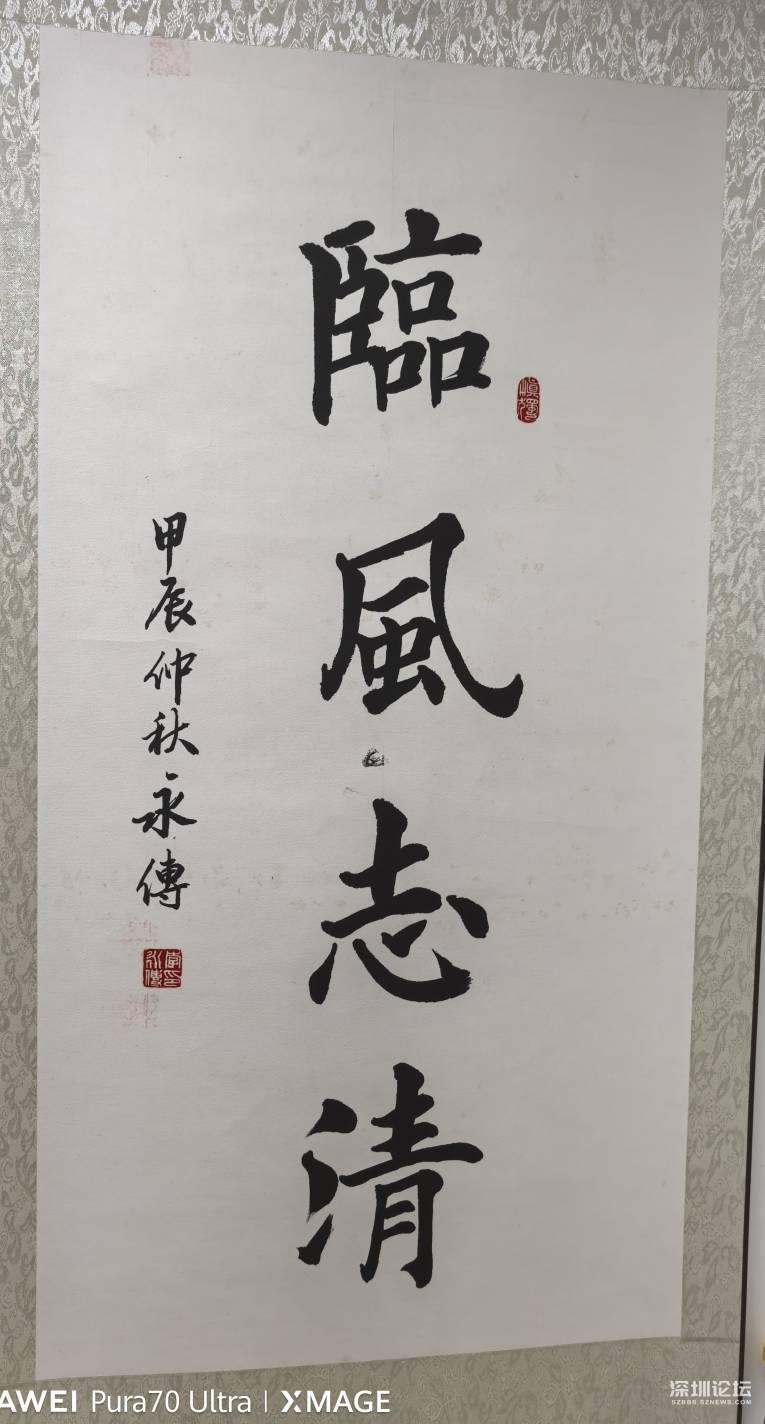 臨風志清
甲辰仲秋永傳
AWEI Pura70 Ultra | XMAGE
深圳论坛
SZBBS.SZNEWS.COM